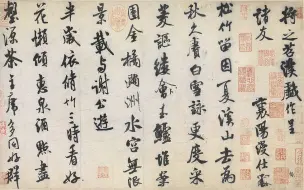 将之苕溪戲作呈
諸友
襄陽漫仕黻
松竹留因夏溪山去為
秋久賡白雪詠更度采
菱謳縷玉鱸堆案
團金橘滿洲水宮無限
景載與謝公遊
半歲依修竹三時看好
花懶傾惠泉酒點盡
壑源茶主席多同好群